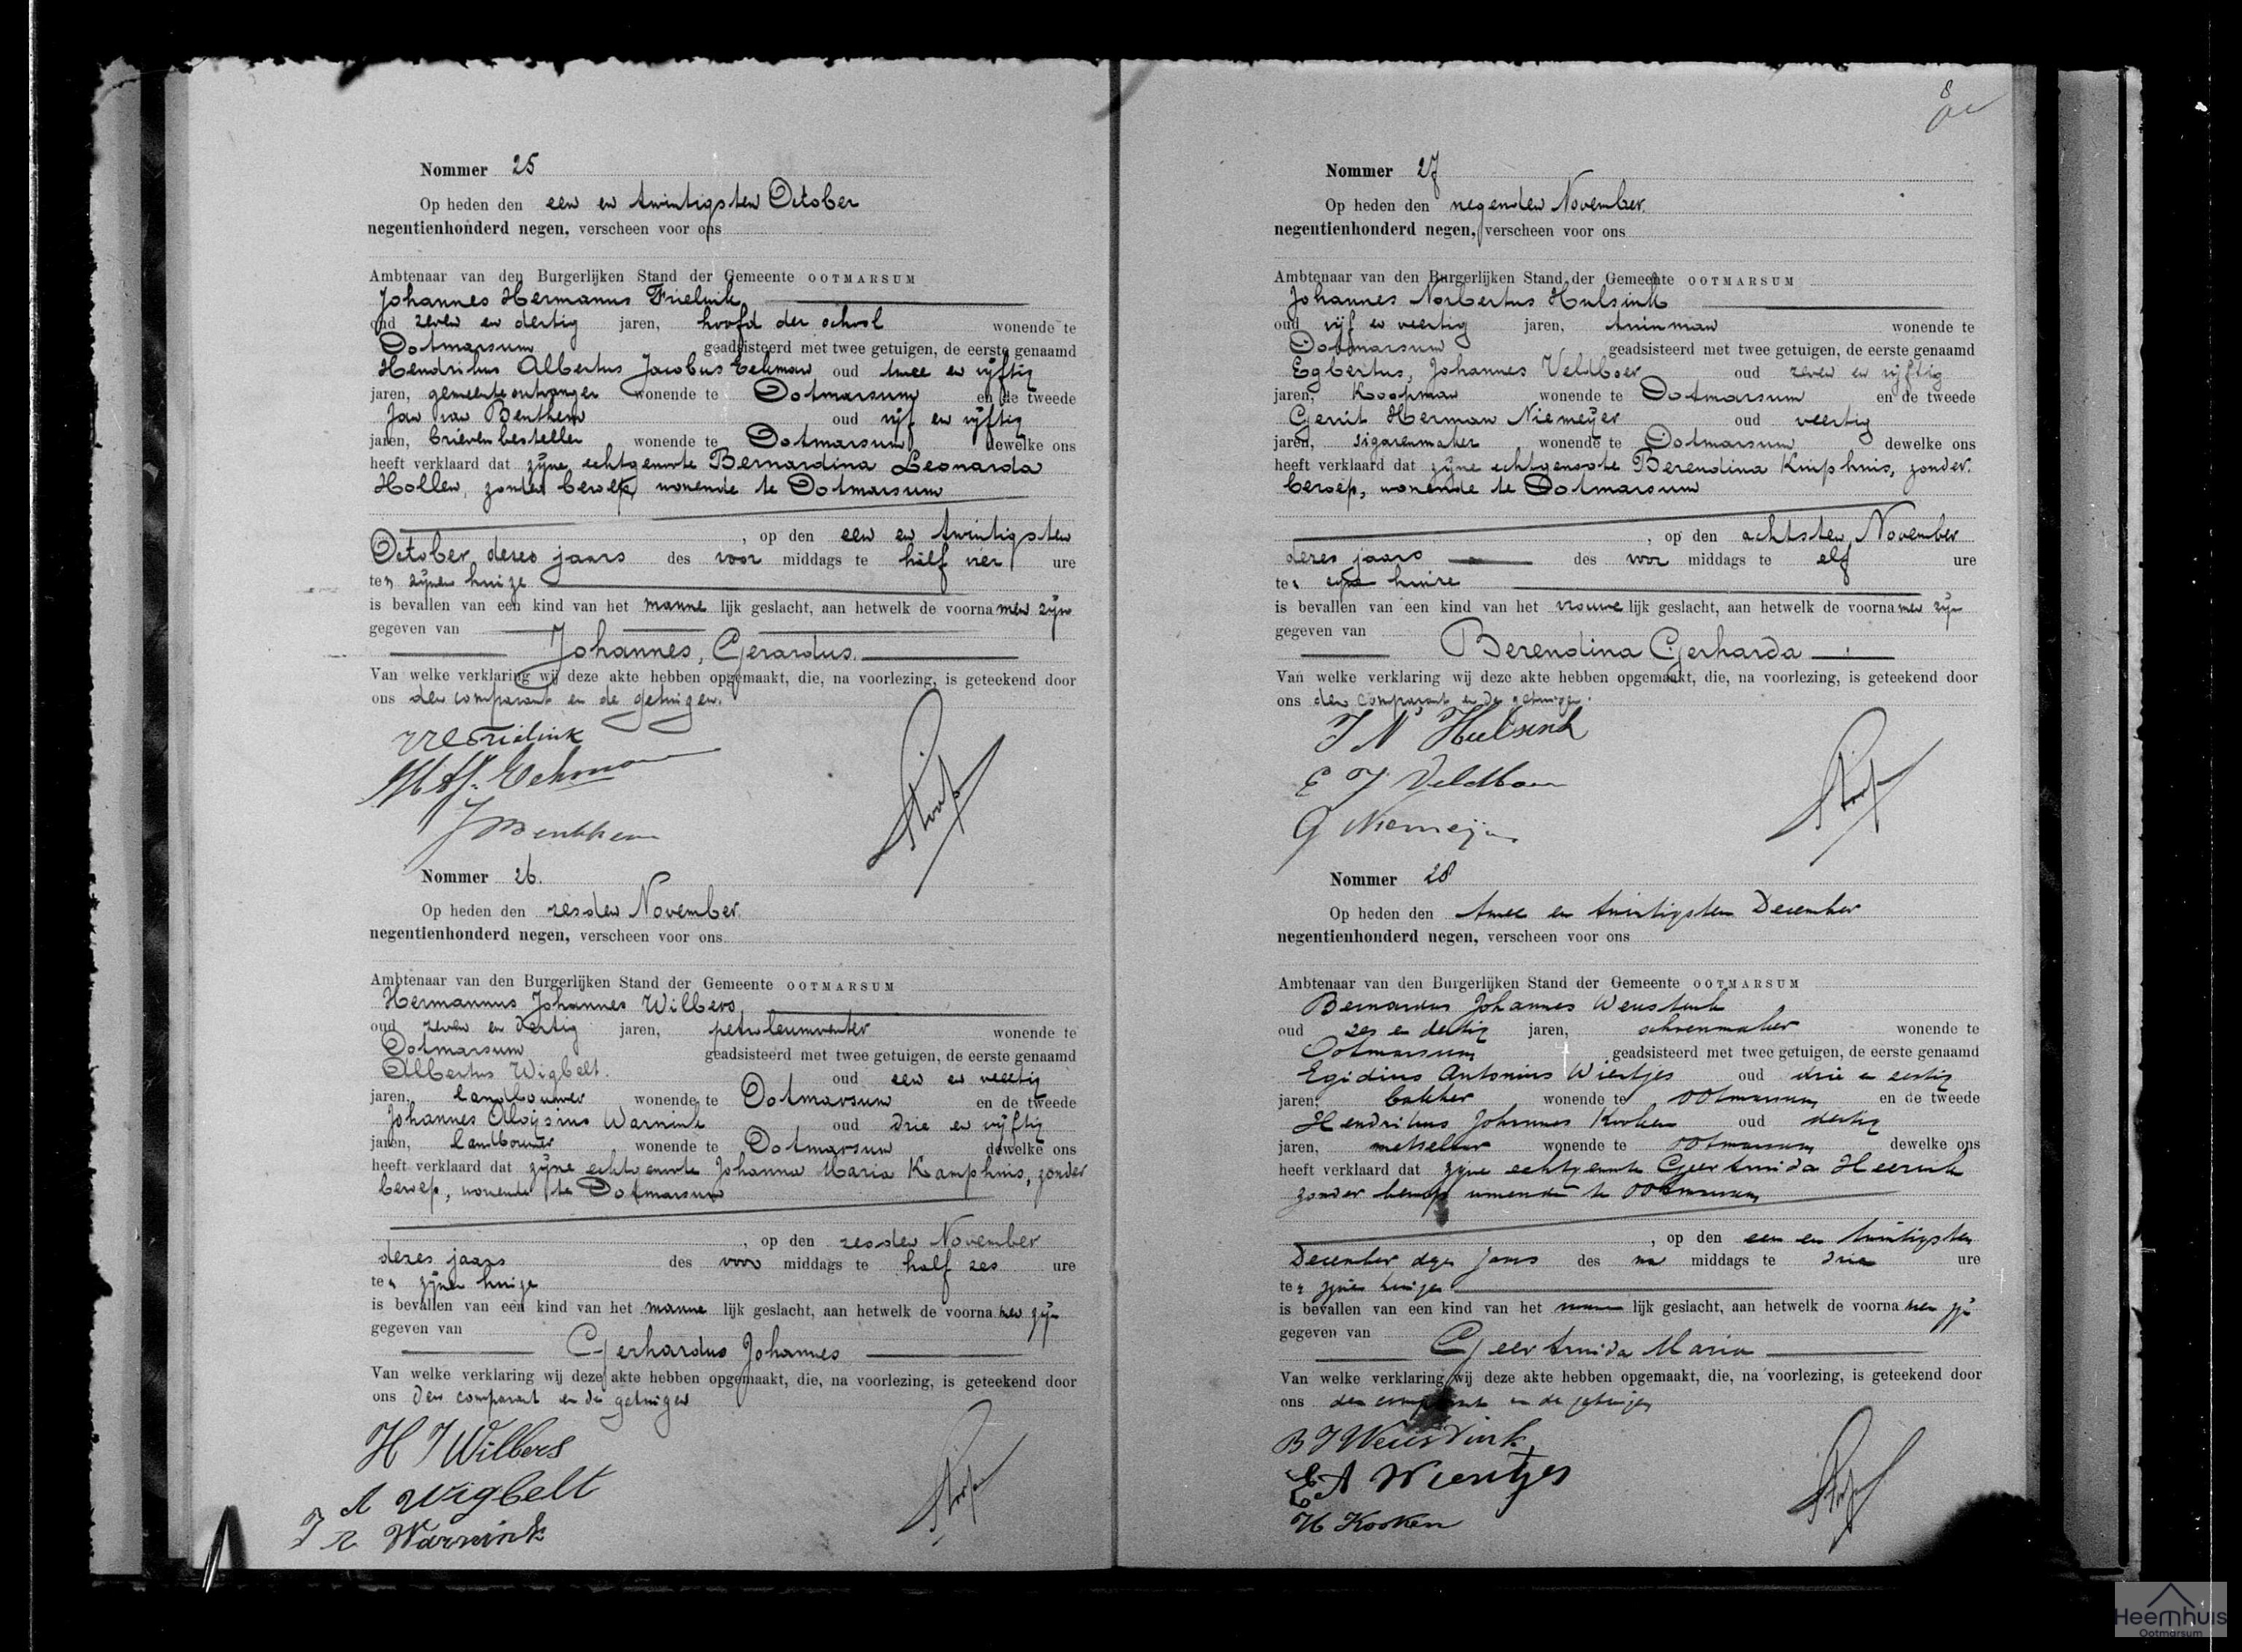 Nommer 25
Op heden den een en twintigsten October
negentienhonderd negen, verscheen voor ons
Ambtenaar van den Burgerlijken Stand der Gemeente OOTMARSUM
Johannes Hermanus Frielink
oud zeven en dertig jaren, hoofd der school wonende te
Ootmarsum geadsisteerd met twee getuigen, de eerste genaamd
Hendrikus Albertus Jacobus Eekman oud twee en vijftig
jaren, gemeenteontvanger wonende te Ootmarsum en de tweede
Jan van Benthem oud vijf en vijftig
jaren, brievenbesteller wonende te Ootmarsum dewelke ons
heeft verklaard dat zijne echtgenoote Bernardina Leonarda
Hollen, zonder beroep, wonende te Ootmarsum
, op den een en twintigsten
October dezes jaars des voor middags te half vier ure
ten zijnen huize
is bevallen van een kind van het manne lijk geslacht, aan hetwelk de voorna men zijn
gegeven van
Johannes, Gerardus.
Van welke verklaring wij deze akte hebben opgemaakt, die, na voorlezing, is geteekend door
ons den comparant en de getuigen.
Frielink
Eekman
J v Benthem
Nommer 26.
Op heden den zesden November.
negentienhonderd negen, verscheen voor ons
Ambtenaar van den Burgerlijken Stand der Gemeente OOTMARSUM
Hermannus Johannes Wilbers
oud zeven en dertig jaren, petroleumventer wonende te
Ootmarsum geadsisteerd met twee getuigen, de eerste genaamd
Albertus Wigbelt. oud een en veertig
jaren, landbouwer wonende te Ootmarsum en de tweede
Johannes Aloijsius Warnink oud drie en vijftig
jaren, landbouwer wonende te Ootmarsum dewelke ons
heeft verklaard dat zijne echtgenoote Johanna Maria Kamphuis, zonder
beroep, wonende te Ootmarsum
, op den zesden November
dezes jaars des voor middags te half zes ure
ten zijnen huize
is bevallen van een kind van het manne lijk geslacht, aan hetwelk de voorna men zijn
gegeven van
Gerhardus Johannes
Van welke verklaring wij deze akte hebben opgemaakt, die, na voorlezing, is geteekend door
ons den comparant en de getuigen
H J Wilbers
A Wigbelt
J A Warnink
8
Nommer 27
Op heden den negenden November.
negentienhonderd negen, verscheen voor ons
Ambtenaar van den Burgerlijken Stand der Gemeente OOTMARSUM
Johannes Norbertus Hulsink
oud vijf en veertig jaren, tuinman wonende te
Ootmarsum geadsisteerd met twee getuigen, de eerste genaamd
Egbertus, Johannes Veldboer oud zeven en vijftig
jaren, Koopman wonende te Ootmarsum en de tweede
Gerrit Herman Niemeijer oud veertig
jaren, sigarenmaker wonende te Ootmarsum dewelke ons
heeft verklaard dat zijne echtgenoote Berendina Kuiphuis, zonder
beroep, wonende te Ootmarsum
, op den achtsten November
dezes jaars des voor middags te elf ure
ten huize
is bevallen van een kind van het vrouwe lijk geslacht, aan hetwelk de voorna men zijn
gegeven van
Berendina Gerharda
Van welke verklaring wij deze akte hebben opgemaakt, die, na voorlezing, is geteekend door
ons den comparant en de getuigen.
J N Hulsink
E J Veldboer
G Niemeijer
Nommer 28
Op heden den twee en twintigsten December
negentienhonderd negen, verscheen voor ons
Ambtenaar van den Burgerlijken Stand der Gemeente OOTMARSUM
Bernardus Johannes Weusthink
oud zes en dertig jaren, schoenmaker wonende te
Ootmarsum geadsisteerd met twee getuigen, de eerste genaamd
Egidius Antonius Wientjes oud drie en zestig
jaren, bakker wonende te Ootmarsum en de tweede
Hendrikus Johannes Kooken oud dertig
jaren, metselaar wonende te Ootmarsum dewelke ons
heeft verklaard dat zijne echtgenoote Geertruida Heerink
zonder beroep wonende te Ootmarsum
, op den een en twintigsten
December dezes jaars des na middags te drie ure
ten zijnen huize
is bevallen van een kind van het lijk geslacht, aan hetwelk de voorna men zijn
gegeven van
Geertruida Maria
Van welke verklaring wij deze akte hebben opgemaakt, die, na voorlezing, is geteekend door
ons den comparant en de getuigen
B J Weusthink
E A Wientjes
H Kooken
Heemhuis
Ootmarsum